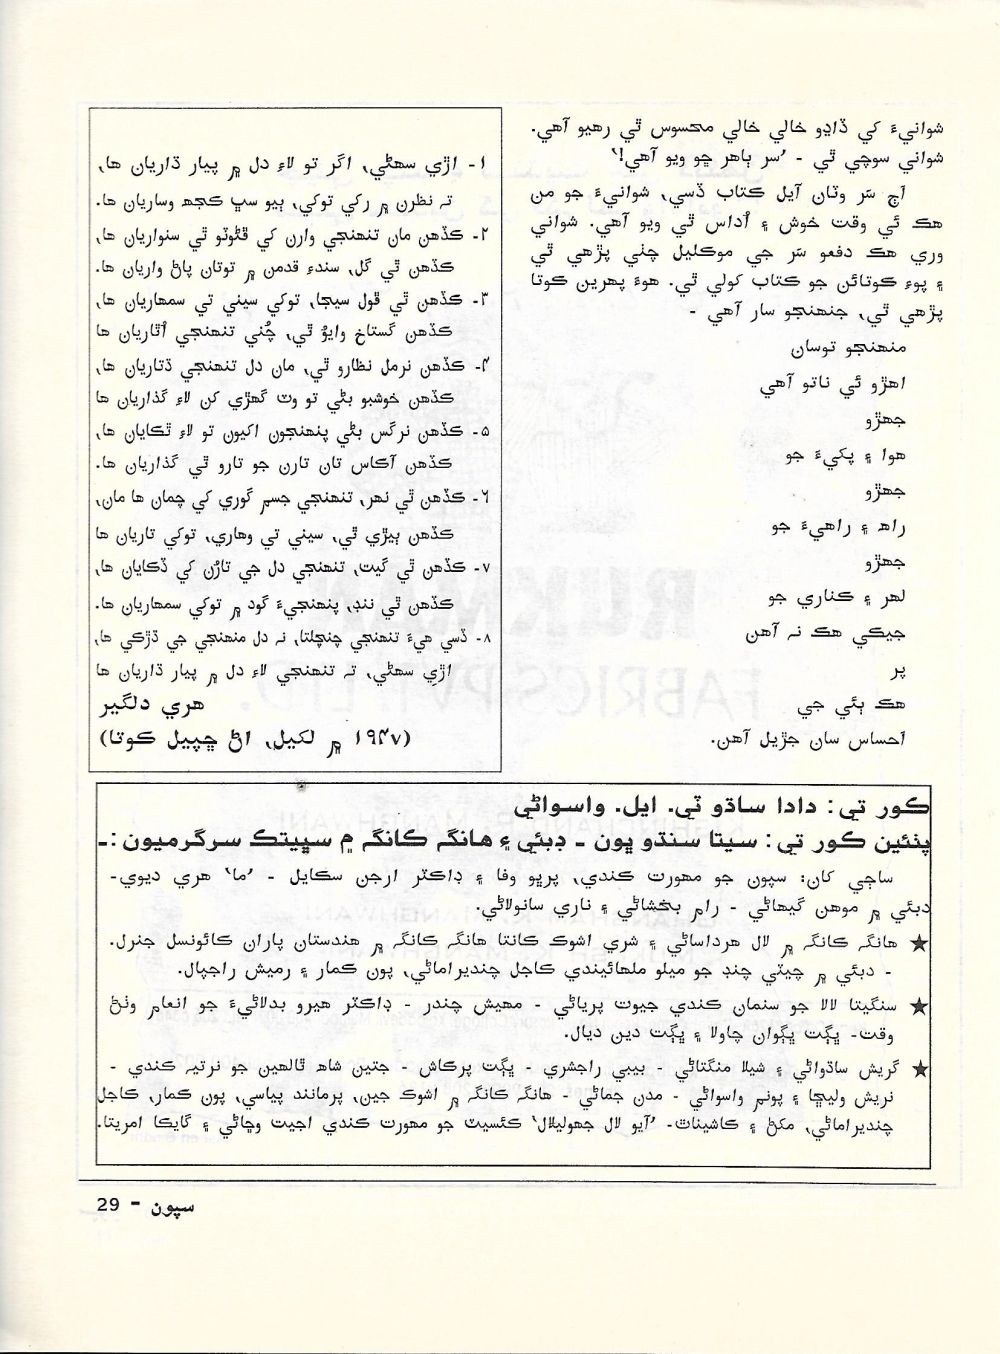 شوانيءَ کي ڏاڍو خالي خالي محسوس ٿي رهيو آهي.
شواني سوچي ٿي - ’سر ٻاهر ڇو ويو آهي!‘
اڄ سَر وٽان آيل ڪتاب ڏسي، شوانيءَ جو من
هڪ ئي وقت خوش ۽ اُداس ٿي ويو آهي. شواني
وري هڪ دفعو سَر جي موڪليل چٺي پڙهي ٿي
۽ پوءِ ڪوتائن جو ڪتاب کولي ٿي. هوءَ پهرين ڪوتا
پڙهي ٿي، جنهنجو سار آهي -
منهنجو توسان
اهڙو ئي ناتو آهي
جهڙو
هوا ۽ پکيءَ جو
جهڙو
راهه ۽ راهيءَ جو
جهڙو
لهر ۽ ڪناري جو
جيڪي هڪ نہ آهن
پر
هڪ ٻئي جي
احساس سان جڙيل آهن.
۱- اڙي سهڻي، اگر تو لاءِ دل ۾ پيار ڌاريان ها،
تہ نظرن ۾ رکي توکي، ٻيو سڀ ڪجهه وساريان ها.
۲- ڪڏهن مان تنهنجي وارن کي ڦڻوٽو ٿي سنواريان ها،
ڪڏهن ٿي گل، سندءِ قدمن ۾ توتان پاڻ واريان ها.
۳- ڪڏهن ٿي ڦول سيڄا، توکي سيني تي سمهاريان ها،
ڪڏهن گستاخ وايوُ ٿي، چُني تنهنجي اُڏاريان ها
۴- ڪڏهن نرمل نظارو ٿي، مان دل تنهنجي ڌتاريان ها،
ڪڏهن خوشبو بڻي تو وٽ گهڙي کن لاءِ گذاريان ها
۵- ڪڏهن نرگس بڻي پنهنجون اکيون تو لاءِ ٿڪايان ها،
ڪڏهن آڪاس تان تارن جو تارو ٿي گذاريان ها.
۶- ڪڏهن ٿي نهر، تنهنجي جسم گوري کي چمان ها مان،
ڪڏهن ٻيڙي ٿي، سيني تي وهاري، توکي تاريان ها
۷- ڪڏهن ٿي گيت، تنهنجي دل جي تاڙن کي ڌڪايان ها،
ڪڏهن ٿي ننڊ، پنهنجيءَ گود ۾ توکي سمهاريان ها.
۸- ڏسي هيءَ تنهنجي چنچلتا، نہ دل منهنجي جي ڌڙڪي ها،
اڙِي سهڻي، تہ تنهنجي لاءِ دل ۾ پيار ڌاريان ها
هري دلگير
(۱۹۴۷ ۾ لکيل، اڻ ڇپيل ڪوتا)
ڪور تي: دادا ساڌو ٽي. ايل. واسواڻي
پٺئين ڪور تي: سيتا سنڌو ڀون - دبئي ۽ هانگہ ڪانگہ ۾ سڀيتڪ سرگرميون :-
ساڄي کان: سپون جو مهورت ڪندي، پرڀو وفا ۽ ڊاڪٽر ارجن سڪايل - ’ما‘ هري ديوي-
دبئي ۾ موهن گيهاڻي - رام بخشاڻي ۽ ناري سانولاڻي.
★ هانگہ ڪانگہ ۾ لال هرداساڻي ۽ شري اشوڪ ڪانتا هانگہ ڪانگہ ۾ هندستان پاران ڪائونسل جنرل.
- دبئي ۾ چيٽي چنڊ جو ميلو ملهائيندي ڪاجل چنديراماڻي، پون ڪمار ۽ رميش راجپال.
★ سنگيتا لالا جو سنمان ڪندي جيوت پرياڻي - مهيش چندر - ڊاڪٽر هيرو بدلاڻيءَ جو انعام وٺڻ
وقت- ڀڳت ڀڳوان چاولا ۽ ڀڳت دين ديال.
★ گريش ساڌواڻي ۽ شيلا منگتاڻي - بيبي راجشري - ڀڳت پرڪاش - جتين شاهه ٽالهين جو نرتيہ ڪندي -
نريش وليڇا ۽ پونم واسواڻي - مدن جماڻي - هانگہ ڪانگہ ۾ اشوڪ جين، پرمانند پياسي، پون ڪمار، ڪاجل
چنديراماڻي، مکڻ ۽ ڪاشيناٿ- ’آيو لال جهوليلال‘ ڪئسيٽ جو مهورت ڪندي اجيت وڇاڻي ۽ گايڪا امريتا.
سپون - 29